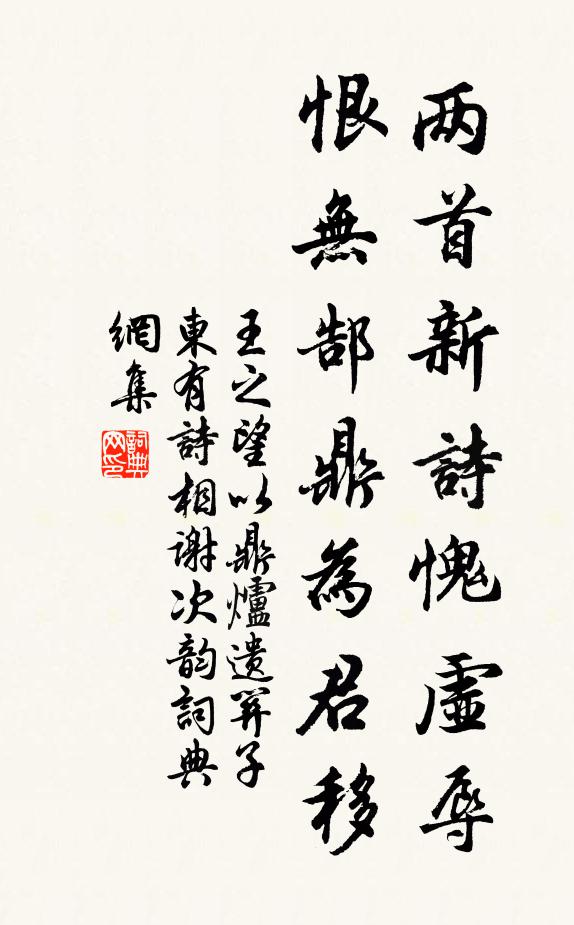 两首新詩愧虛辱
恨無郜鼎為君移
王之望以鼎爐遺羿子
東有詩相谢次韵詞典
網集
詞典网印